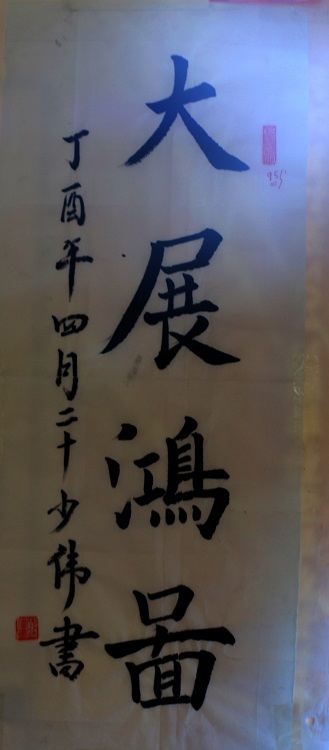 大展鸿啚
丁酉年四月二十少伟書